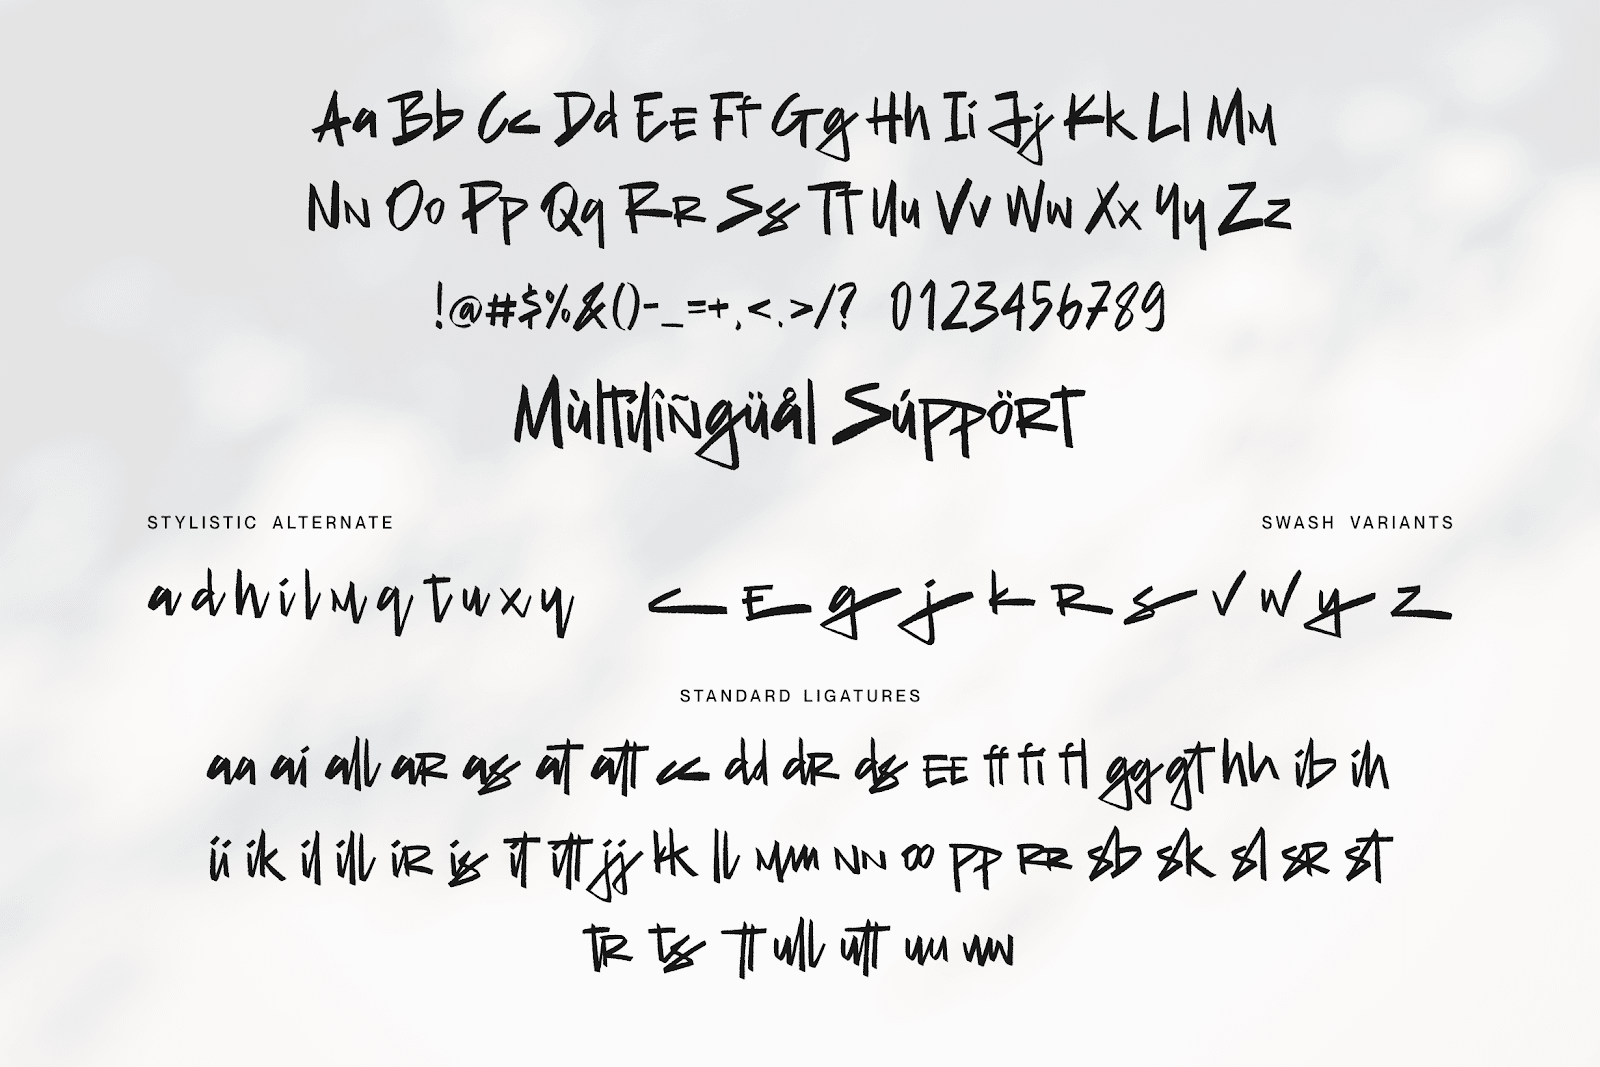 Aa Bb Cc Dd Ee Ff Gg Hh Ii Jj Kk Ll Mm
Nn Oo Pp Qq Rr Ss Tt Uu Vv Ww Xx Yy Zz
!@#$%&()-_=+,<.>/? 0123456789
Mùltilîñgüål Súppört
STYLISTIC ALTERNATE
SWASH VARIANTS
a d h i l m q t u x y
c e g j k r s v w y z
STANDARD LIGATURES
aa ai all ar as at att cc dd dr ds ee ff fi fl gg gt hh ib ih
ii ik il ill ir is it itt jj kk ll mm nn oo pp rr sb sk sl sr st
tr ts tt ull utt uu ww